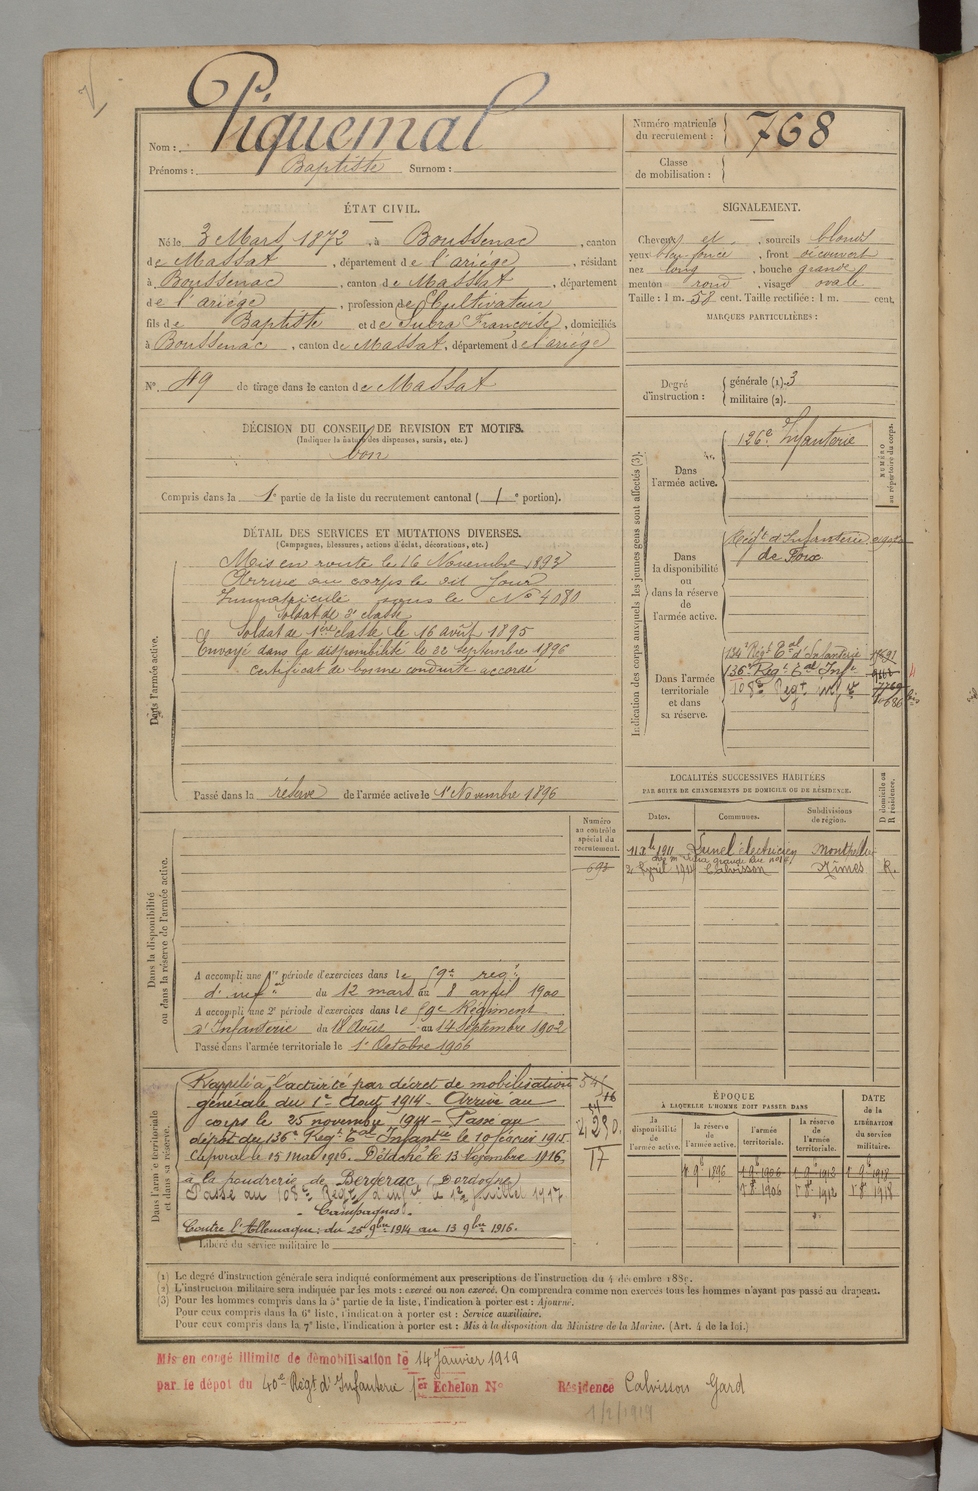 Nom : Piquemal
Prénoms : Baptiste Surnom :
Numéro matricule du recrutement : 768
Classe de mobilisation :
ÉTAT CIVIL.
Né le 3 Mars 1872, à Boussenac, canton
de Massat, département de l'ariège, résidant
à Boussenac, canton de Massat, département
de l'ariège, profession de Cultivateur
fils de Baptiste et de Subra Françoise, domiciliés
à Boussenac, canton de Massat, département de l'ariège
N° 49 de tirage dans le canton de Massat
SIGNALEMENT.
Cheveux et, sourcils blonds
yeux bleu foncé, front découvert
nez long, bouche grande
menton rond, visage ovale
Taille : 1 m. 58 cent. Taille rectifiée : 1 m. cent.
MARQUES PARTICULIÈRES :
Degré d'instruction : générale (1). 3
militaire (2).
DÉCISION DU CONSEIL DE REVISION ET MOTIFS.
(Indiquer la nature des dispenses, sursis, etc.)
bon
Compris dans la 1e partie de la liste du recrutement cantonal ( 1 e portion).
DÉTAIL DES SERVICES ET MUTATIONS DIVERSES.
(Campagnes, blessures, actions d'éclat, décorations, etc.)
Dans l'armée active.
Mis en route le 16 Novembre 1893
Arrivé au corps le dit jour
Immatriculé sous le N° 4080
Soldat de 2e classe
Soldat de 1ère classe le 16 août 1895
Envoyé dans la disponibilité le 22 septembre 1896
certificat de bonne conduite accordé
Passé dans la réserve de l'armée active le 1er Novembre 1896
Indication des corps auxquels les jeunes gens sont affectés (3).
NUMÉRO au répertoire du corps.
Dans l'armée active.
126e Infanterie
Dans la disponibilité ou dans la réserve de l'armée active.
Régt d'Infanterie
de Foix
Dans l'armée territoriale et dans sa réserve.
134e Régt Eal d'Infanterie
136e Régt Eal Infie
108e Régt
LOCALITÉS SUCCESSIVES HABITÉES
PAR SUITE DE CHANGEMENTS DE DOMICILE OU DE RÉSIDENCE.
Dates. Communes. Subdivisions de région. D domicile ou R résidence.
1911 Lunel électricien Montpellier
2 Avril 1914 Calvisson Nîmes R.
Numéro au contrôle spécial du recrutement.
693
Dans la disponibilité ou dans la réserve de l'armée active.
A accompli une 1re période d'exercices dans le 59e régt
d'infie du 12 mars au 8 avril 1900
A accompli une 2e période d'exercices dans le 59e Régiment
d'Infanterie du 18 Août au 14 Septembre 1902
Passé dans l'armée territoriale le 1er Octobre 1906
Dans l'armée territoriale et dans sa réserve.
Rappelé à l'activité par décret de mobilisation
générale du 1er Août 1914. Arrivé au
corps le 25 novembre 1914. Passé au
dépôt du 136e Régt Eal Infantie le 10 février 1915.
Caporal le 15 mai 1916. Détaché le 13 Novembre 1916,
à la poudrerie de Bergerac (Dordogne)
Passé au 108e Régt d'infie le 1er juillet 1917
Campagnes.
Contre l'Allemagne : du 25 9bre 1914 au 13 9bre 1916.
Libéré du service militaire le
ÉPOQUE
A LAQUELLE L'HOMME DOIT PASSER DANS
la disponibilité de l'armée active. la réserve de l'armée active. l'armée territoriale. la réserve de l'armée territoriale. DATE de la LIBÉRATION du service militaire.
1 9b 1896 1 9b 1906 1 9b 1912 1 9b 1918
1 8b 1906 1 8b 1912 1 8b 1918
(1) Le degré d'instruction générale sera indiqué conformément aux prescriptions de l'instruction du 4 décembre 1889.
(2) L'instruction militaire sera indiquée par les mots : exercé ou non exercé. On comprendra comme non exercés tous les hommes n'ayant pas passé au drapeau.
(3) Pour les hommes compris dans la 5e partie de la liste, l'indication à porter est : Ajourné.
Pour ceux compris dans la 6e liste, l'indication à porter est : Service auxiliaire.
Pour ceux compris dans la 7e liste, l'indication à porter est : Mis à la disposition du Ministre de la Marine. (Art. 4 de la loi.)
Mis en congé illimité de démobilisation le 14 Janvier 1919
par le dépot du 40e Régt d'Infanterie 1er Echelon N° Résidence Calvisson Gard
1/2/1919